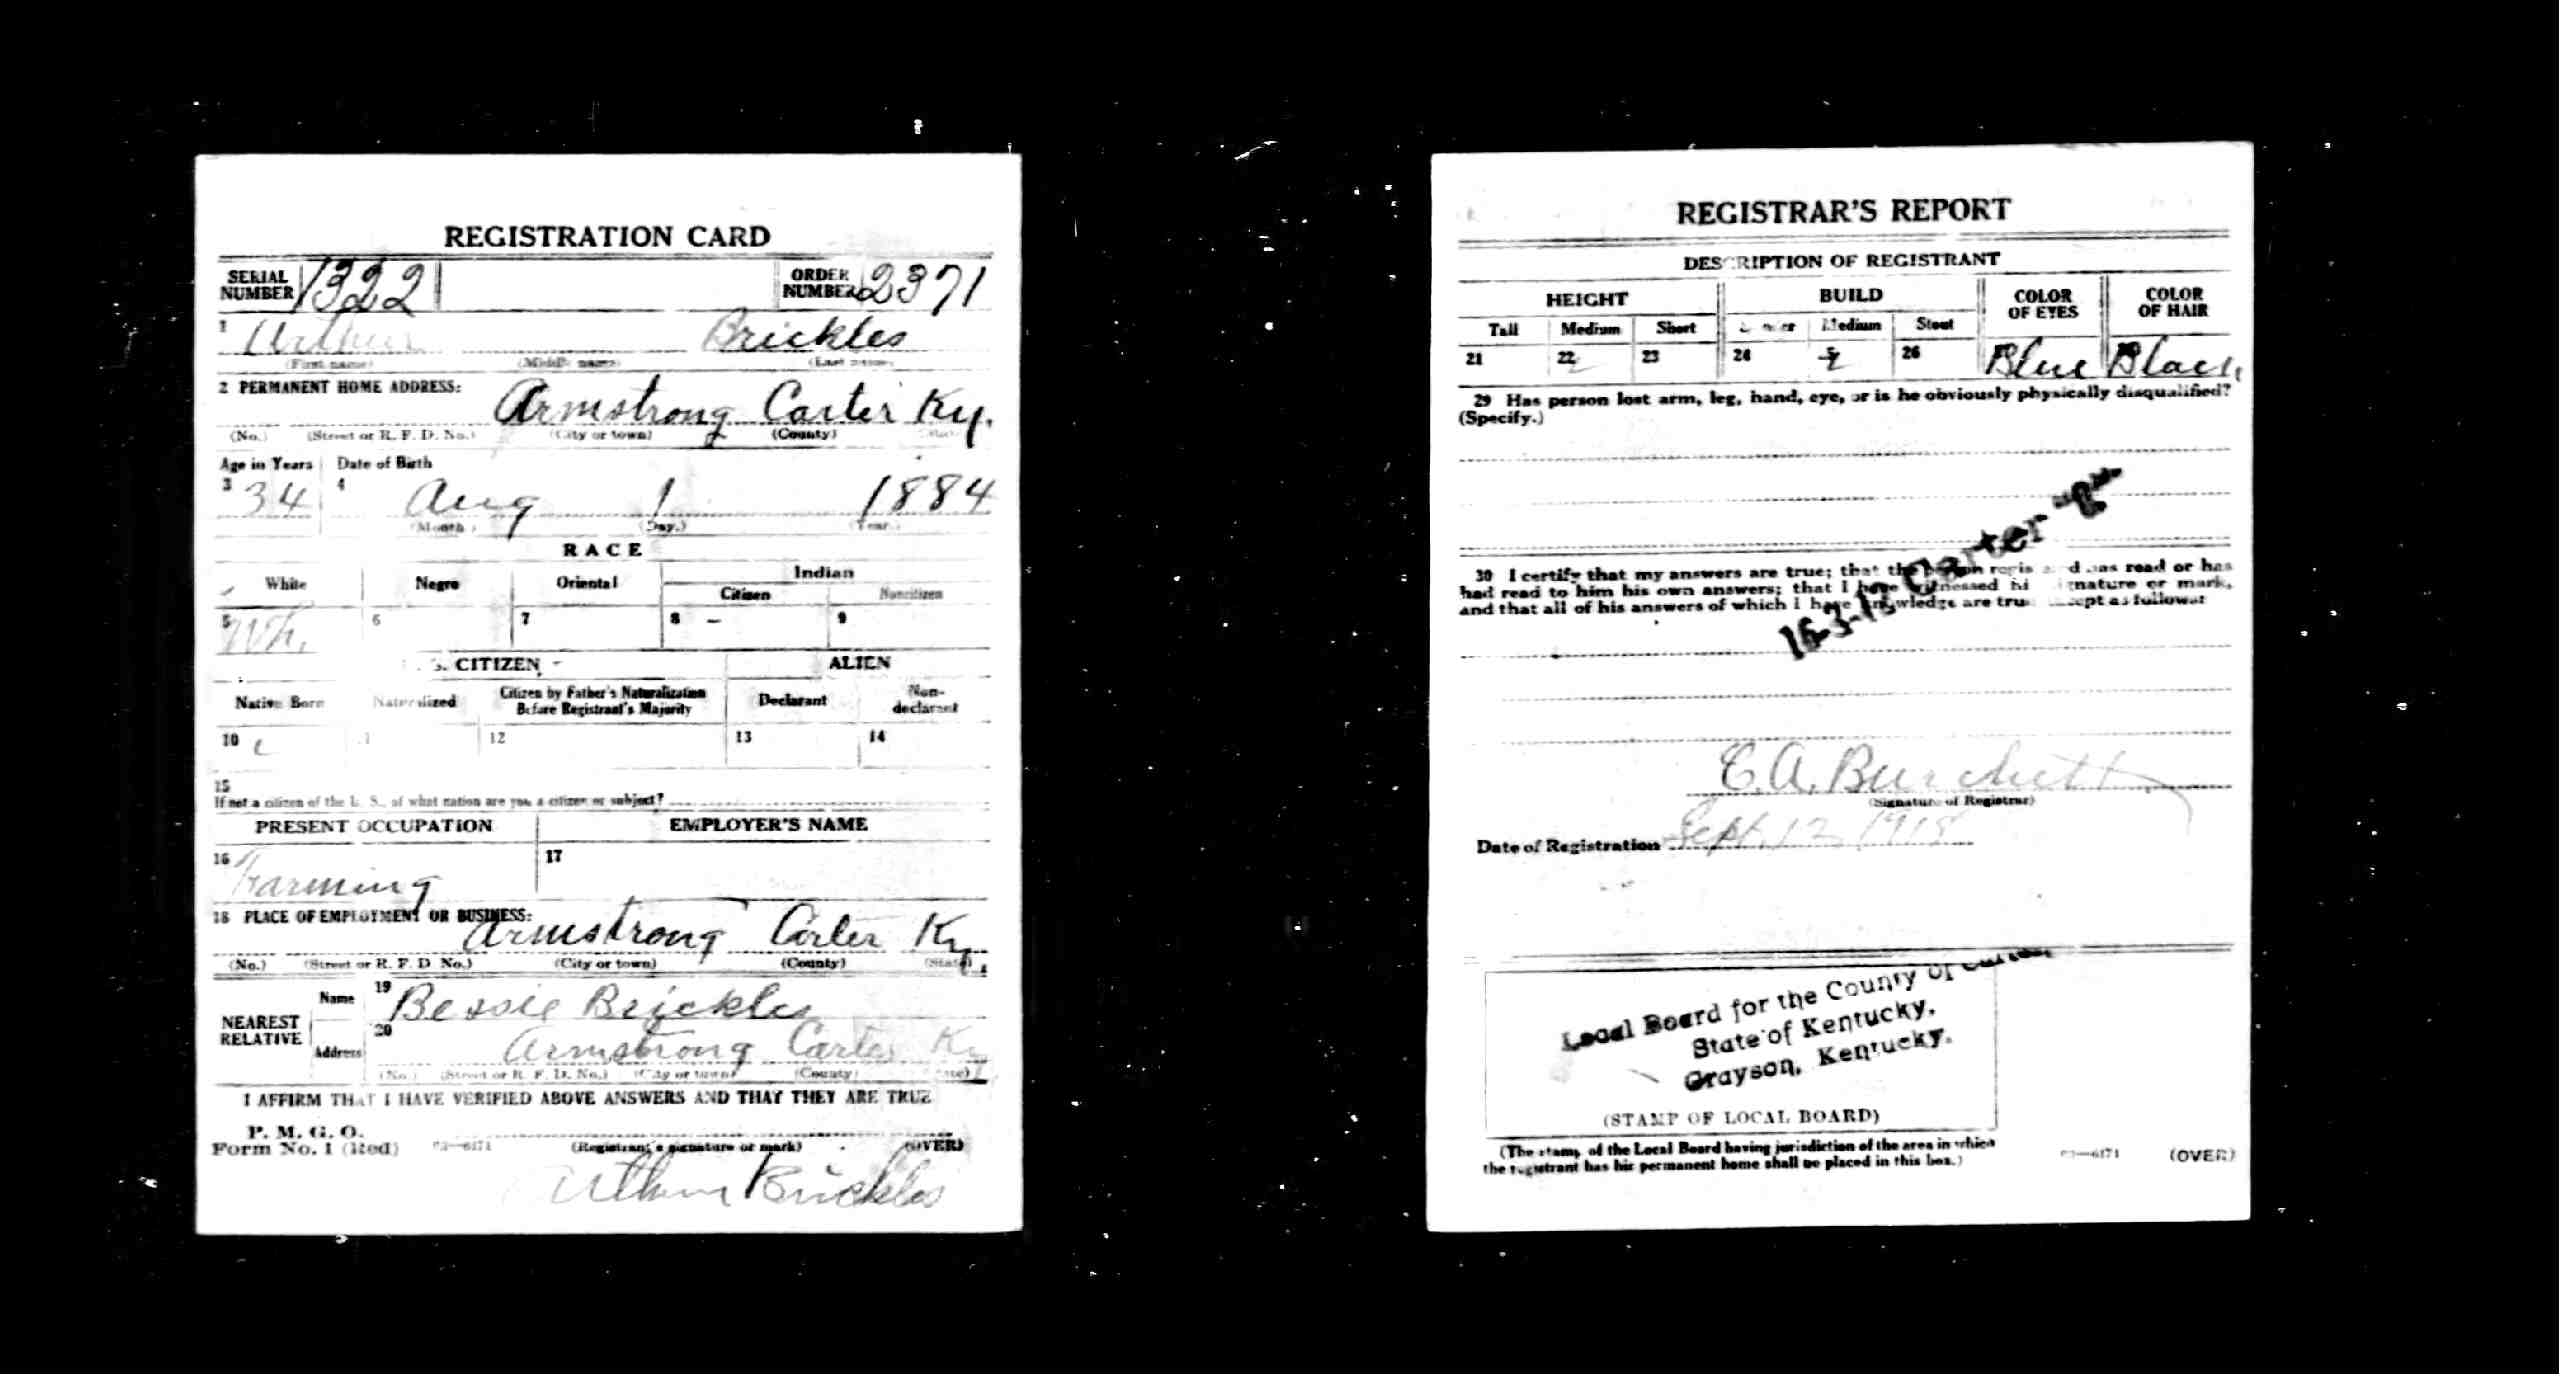 REGISTRATION CARD
SERIAL NUMBER 1322 ORDER NUMBER 2371
1 Arthur Brickles
(First name) (Middle name) (Last name)
2 PERMANENT HOME ADDRESS:
Armstrong Carter Ky.
(No.) (Street or R. F. D. No.) (City or town) (County) (State)
Age in Years Date of Birth
3 34 4 Aug 1 1884
(Month.) (Day.) (Year.)
RACE
White Negro Oriental Indian
Citizen Noncitizen
5 Wh. 6 7 8 – 9
S. CITIZEN ALIEN
Native Born Naturalized Citizen by Father's Naturalization Before Registrant's Majority Declarant Non-declarant
10 12 13 14
15
If not a citizen of the U. S., of what nation are you a citizen or subject?
PRESENT OCCUPATION EMPLOYER'S NAME
16 Farming 17
18 PLACE OF EMPLOYMENT OR BUSINESS:
Armstrong Carter Ky.
(No.) (Street or R. F. D. No.) (City or town) (County) (State)
NEAREST RELATIVE
Name 19 Bessie Brickles
Address 20 Armstrong Carter Ky
(No.) (Street or R. F. D. No.) (City or town) (County) (State)
I AFFIRM THAT I HAVE VERIFIED ABOVE ANSWERS AND THAT THEY ARE TRUE
P. M. G. O.
Form No. 1 (Red) 03—6171 (Registrant's signature or mark) (OVER)
Arthur Brickles
REGISTRAR'S REPORT
DESCRIPTION OF REGISTRANT
HEIGHT BUILD COLOR OF EYES COLOR OF HAIR
Tall Medium Short Slender Medium Stout
21 22 23 24 26 Blue Black
29 Has person lost arm, leg, hand, eye, or is he obviously physically disqualified?
(Specify.)
16-3-12 Carter
30 I certify that my answers are true; that the person registered has read or has
had read to him his own answers; that I have witnessed his signature or mark,
and that all of his answers of which I have knowledge are true, except as follows:
E. A. Burchett
(Signature of Registrar)
Date of Registration Sept. 12 1918
Local Board for the County of Carter,
State of Kentucky,
Grayson, Kentucky.
(STAMP OF LOCAL BOARD)
(The stamp of the Local Board having jurisdiction of the area in which
the registrant has his permanent home shall be placed in this box.)
03—6171 (OVER)